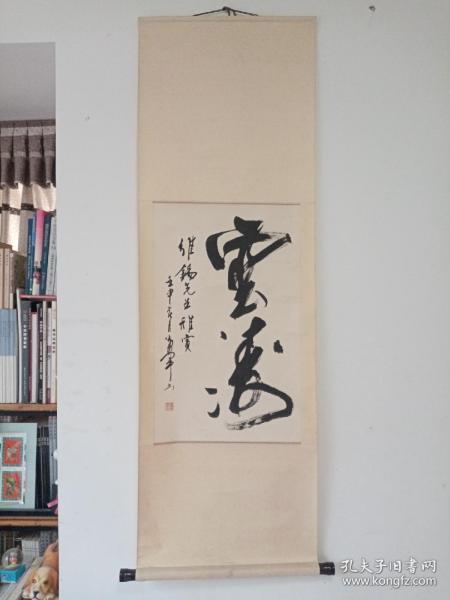 雲涛
維錫先生雅賞
壬申六月
孔夫子旧书网
www.kongfz.com